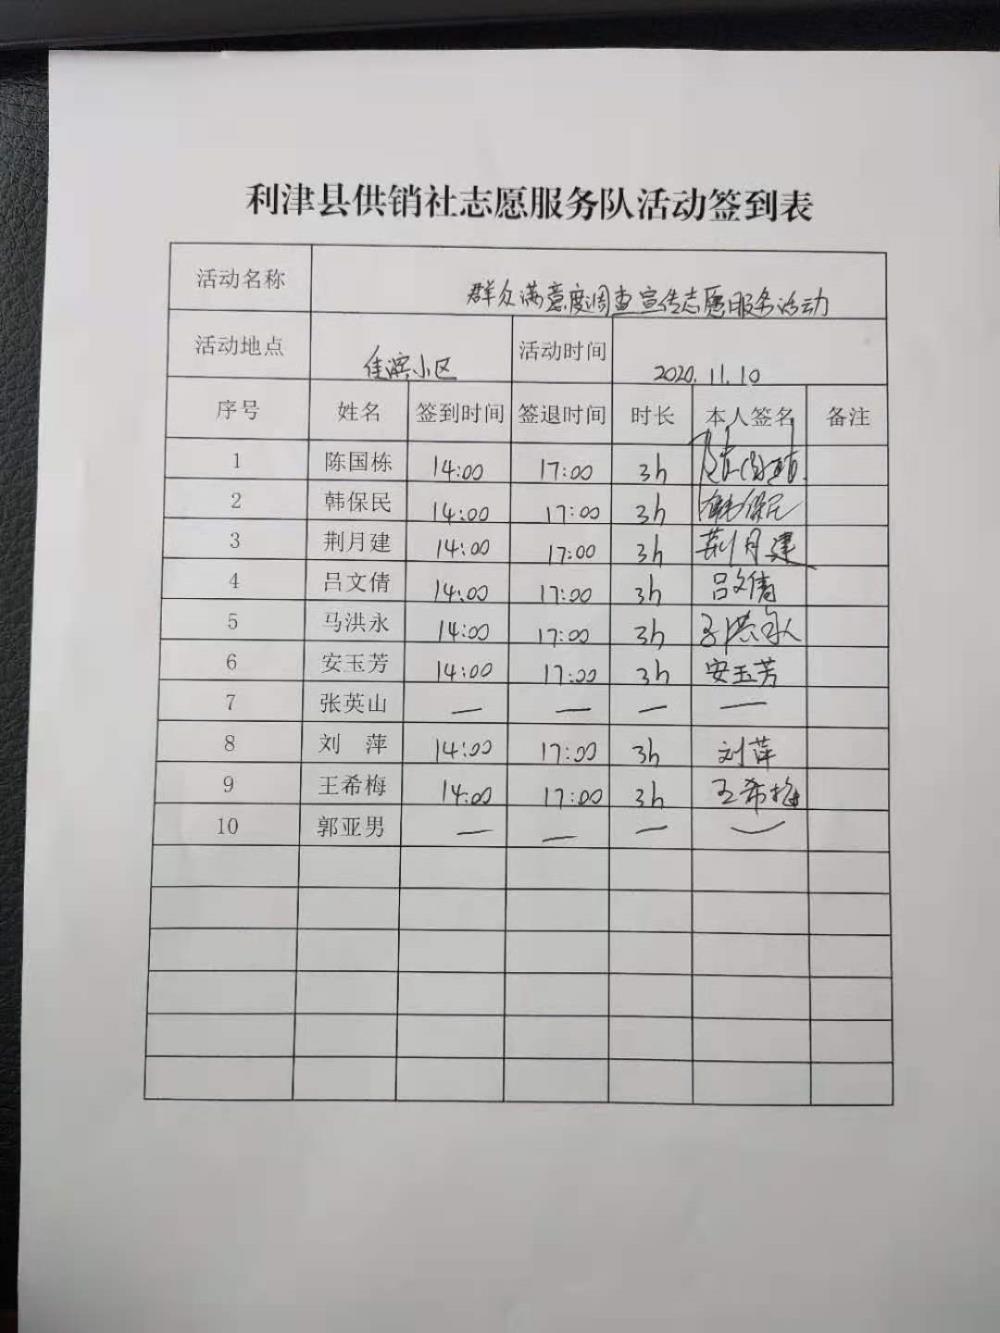 利津县供销社志愿服务队活动签到表
活动名称 群众满意度调查宣传志愿服务活动
活动地点 佳滨小区 活动时间 2020.11.10
序号 姓名 签到时间 签退时间 时长 本人签名 备注
1 陈国栋 14:00 17:00 3h 陈国栋
2 韩保民 14:00 17:00 3h 韩保民
3 荆月建 14:00 17:00 3h 荆月建
4 吕文倩 14:00 17:00 3h 吕文倩
5 马洪永 14:00 17:00 3h 马洪永
6 安玉芳 14:00 17:00 3h 安玉芳
7 张英山 — — — —
8 刘 萍 14:00 17:00 3h 刘萍
9 王希梅 14:00 17:00 3h 王希梅
10 郭亚男 — — — —